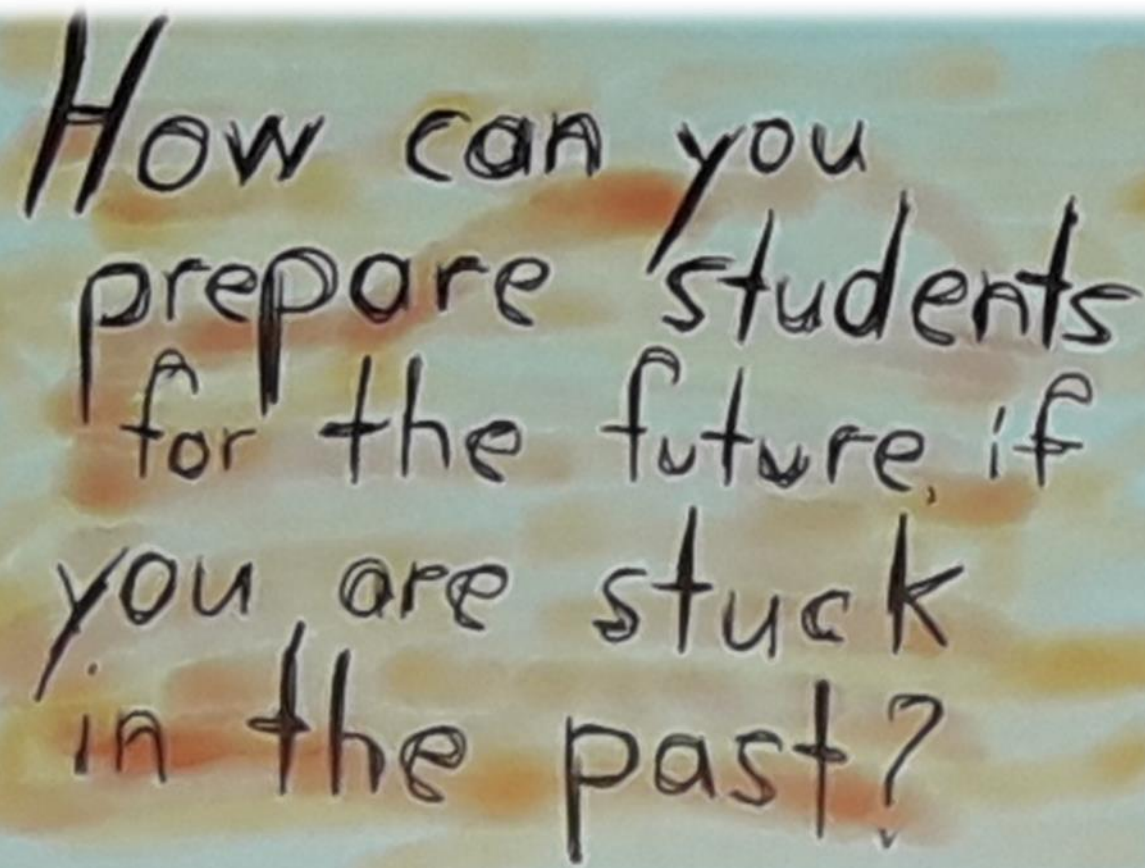 How can you
prepare students
for the future, if
you are stuck
in the past?